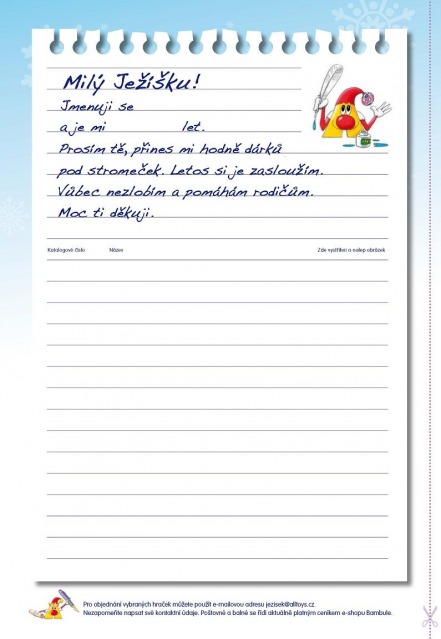 Milý Ježíšku!
Jmenuji se
a je mi let.
Prosím tě, přines mi hodně dárků
pod stromeček. Letos si je zasloužím.
Vůbec nezlobím a pomáhám rodičům.
Moc ti děkuji.
Katalogové číslo Název Zde vystřihni a nalep obrázek
Pro objednání vybraných hraček můžete použít e-mailovou adresu jezisek@alltoys.cz.
Nezapomeňte napsat své kontaktní údaje. Poštovné a balné se řídí aktuálně platným ceníkem e-shopu Bambule.